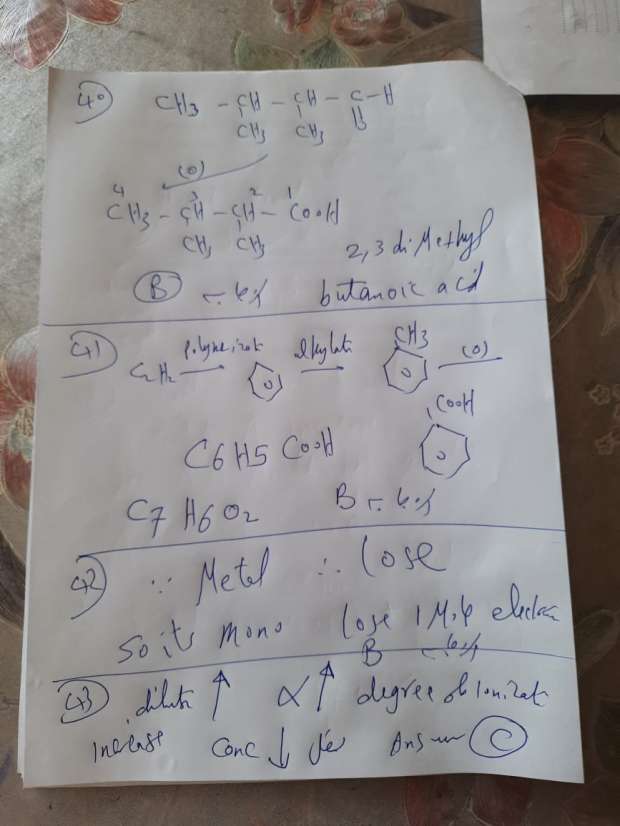 40 CH3 - CH - CH - C - H
CH3 CH3 O
(O)
4 3 2 1
CH3 - CH - CH - COOH
CH3 CH3 2,3 di Methyl
B butanoic acid
41 C2H2 alkylate CH3 (O)
COOH
C6H5 COOH
C7H6O2 B
42 ∵ Metal ∴ lose
so its mono lose 1 Mole electron
B
43 dilute ↑ α ↑ degree of Ionizat
increase Conc ↓ Answer C